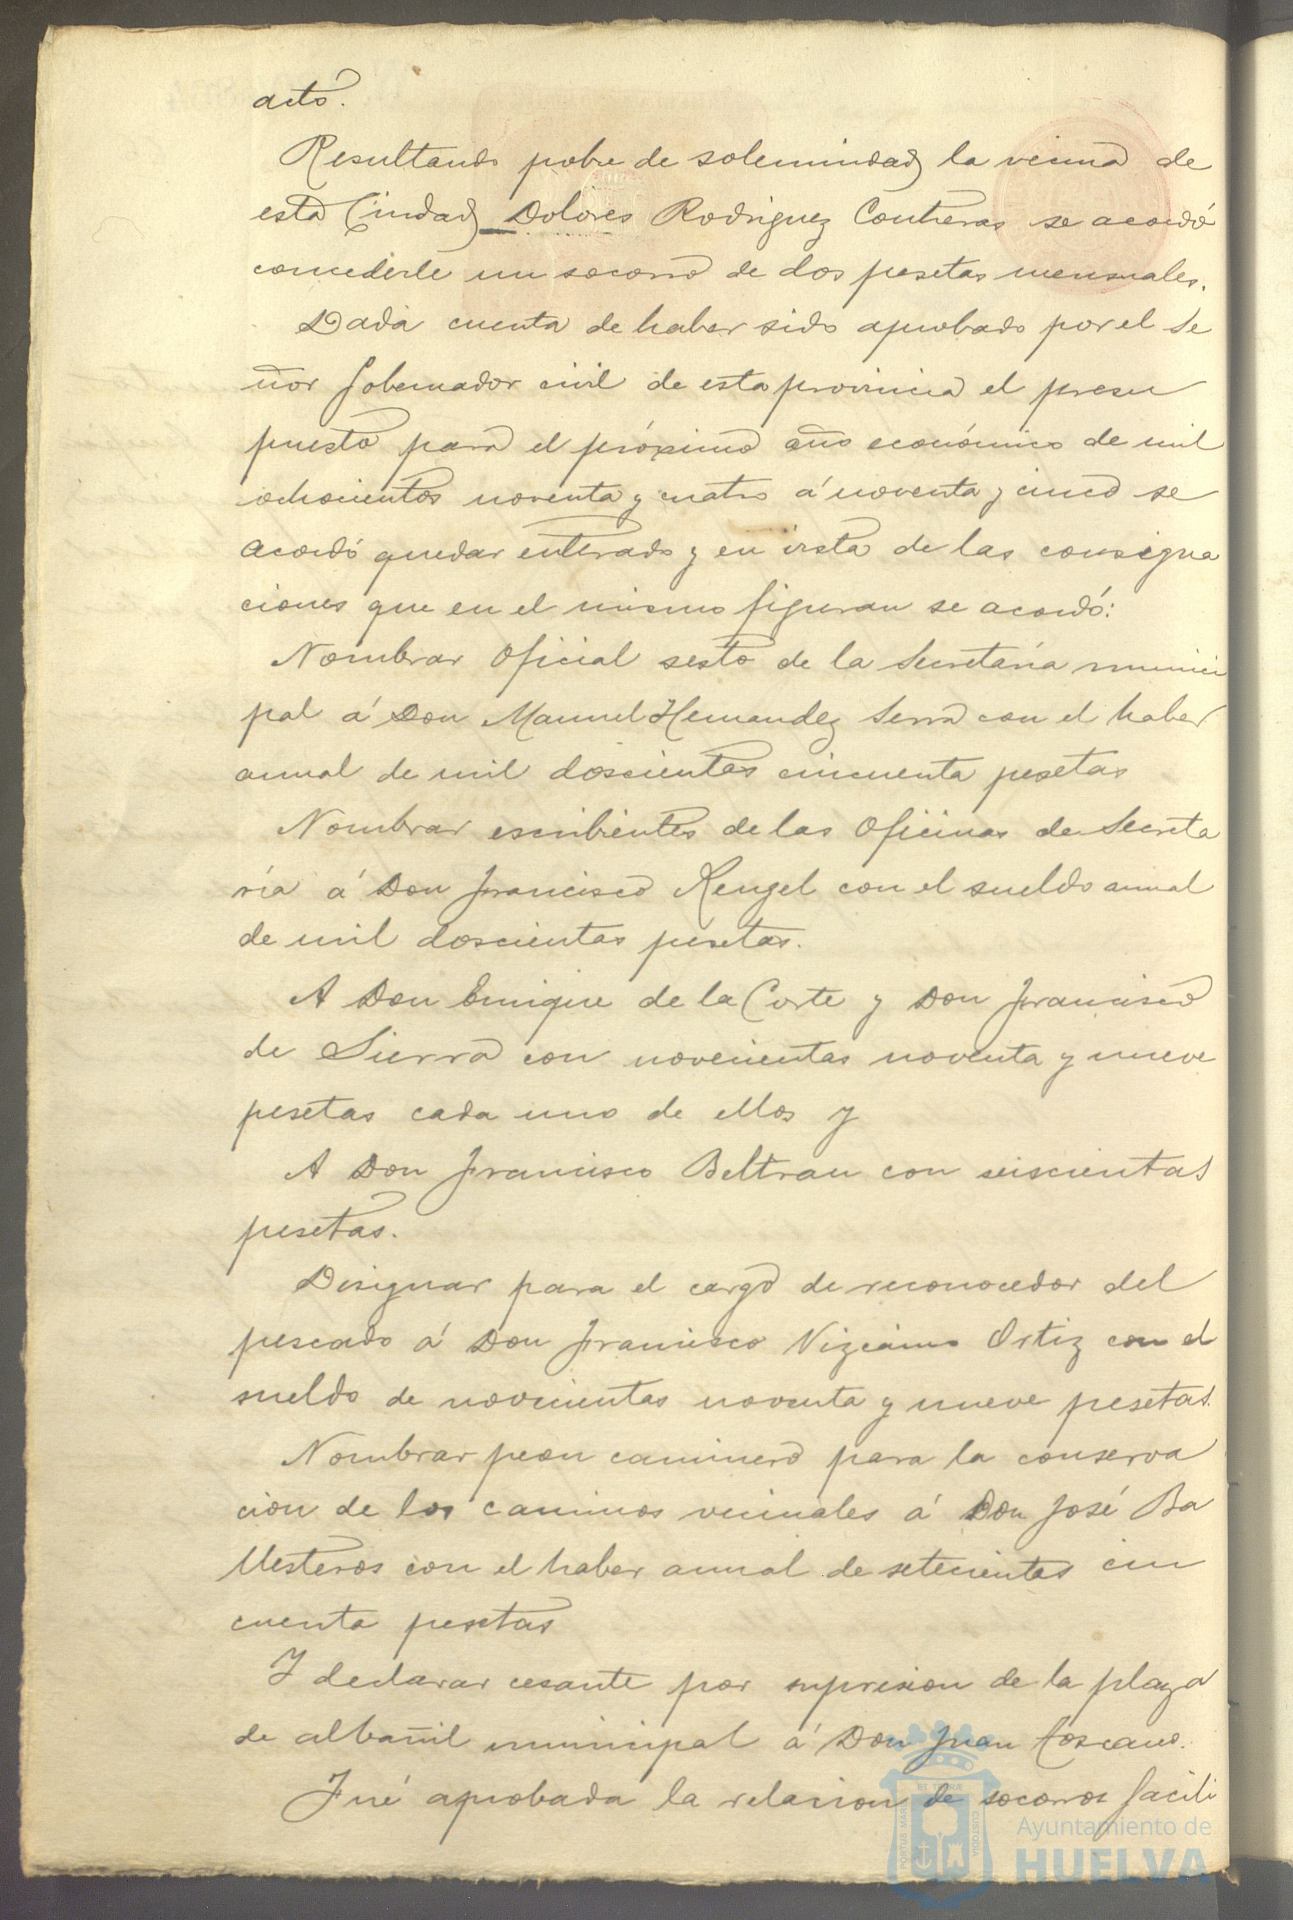 acto.
Resultando pobre de solemnidad la vecina de
esta Ciudad Dolores Rodriguez Contreras se acordó
concederle un socorro de dos pesetas mensuales.
Dada cuenta de haber sido aprobado por el Se
ñor Gobernador civil de esta provincia el presu
puesto para el próximo año económico de mil
ochocientos noventa y cuatro á noventa y cinco se
acordó quedar enterado y en vista de las consigna
ciones que en el mismo figuran se acordó:
Nombrar Oficial sesto de la Secretaría munici
pal á Don Manuel Hernandez Serra con el haber
anual de mil doscientas cincuenta pesetas
Nombrar escribientes de las Oficinas de Secreta
ría á Don Francisco Rengel con el sueldo anual
de mil doscientas pesetas.
A Don Enrique de la Corte y Don Francisco
de Sierra con novecientas noventa y nueve
pesetas cada uno de ellos y
A Don Francisco Beltran con seiscientas
pesetas.
Designar para el cargo de reconocedor del
pescado á Don Francisco Vizcaino Ortiz con el
sueldo de novecientas noventa y nueve pesetas.
Nombrar peon caminero para la conserva
cion de los caminos vecinales á Don José Ba
llesteros con el haber anual de setecientas cin
cuenta pesetas
Y declarar cesante por supresion de la plaza
de albañil municipal á Don Juan Toscano.
Fué aprobada la relacion de socorros facili
PORTUS MARIS
ET TERRÆ
CUSTODIA
Ayuntamiento de
HUELVA